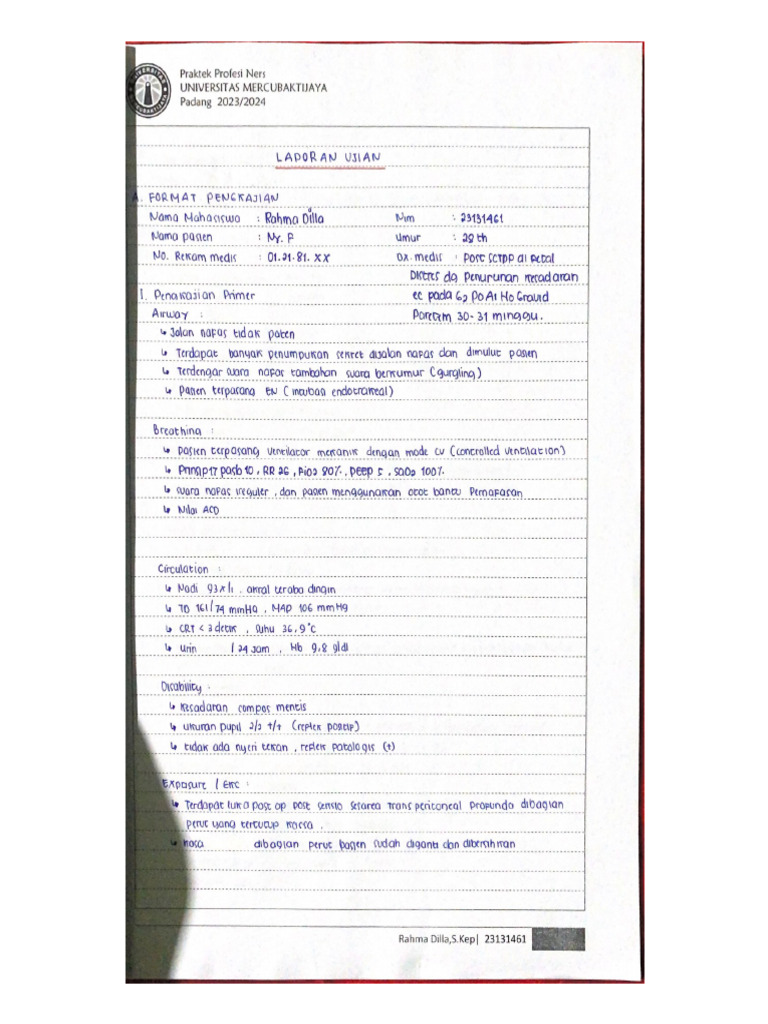 Praktek Profesi Ners
UNIVERSITAS MERCUBAKTIJAYA
Padang 2023/2024
LAPORAN UJIAN
A. FORMAT PENGKAJIAN
Nama Mahasiswa : Rahma Dilla Nim : 23131461
Nama pasien : Ny. P Umur : 28 th
No. Rekam medis : 01.21.81.XX Dx. medis : Post SCTPP ai Fetal
Distres dg Penurunan Kesadaran
1. Pengkajian Primer ec pada G2 P0 A1 H0 Gravid
Airway : Preterm 30-31 minggu.
↳ Jalan nafas tidak paten
↳ Terdapat banyak penumpukan sekret dijalan nafas dan dimulut pasien
↳ Terdengar suara nafas tambahan suara berkumur (gurgling)
↳ pasien terpasang (intubasi endotrakeal)
Breathing :
↳ pasien terpasang ventilator mekanik dengan mode cv (controlled ventilation)
↳ 17 10, RR 26, Fio2 80%, peep 5, SaO2 100%
↳ suara nafas ireguler, dan pasien menggunakan otot bantu Pernafasan
↳ Nilai AGD
Circulation :
↳ Nadi 93x/i, akral teraba dingin
↳ TD 161/74 mmHg, MAP 106 mmHg
↳ CRT < 3 detik, suhu 36,9°c
↳ urin / 24 jam, Hb 9,8 g/dl
Disability :
↳ Kesadaran compos mentis
↳ ukuran pupil 2/2 +/+ (replek positip)
↳ tidak ada nyeri tekan, replek patologis (+)
Exposure / EKG :
↳ Terdapat luka post op post sensio setarea trans periconeal propunda dibagian
perut yang tertutup kassa.
↳ kasa dibagian perut pasien sudah diganti dan dibersihkan
Rahma Dilla,S.Kep| 23131461